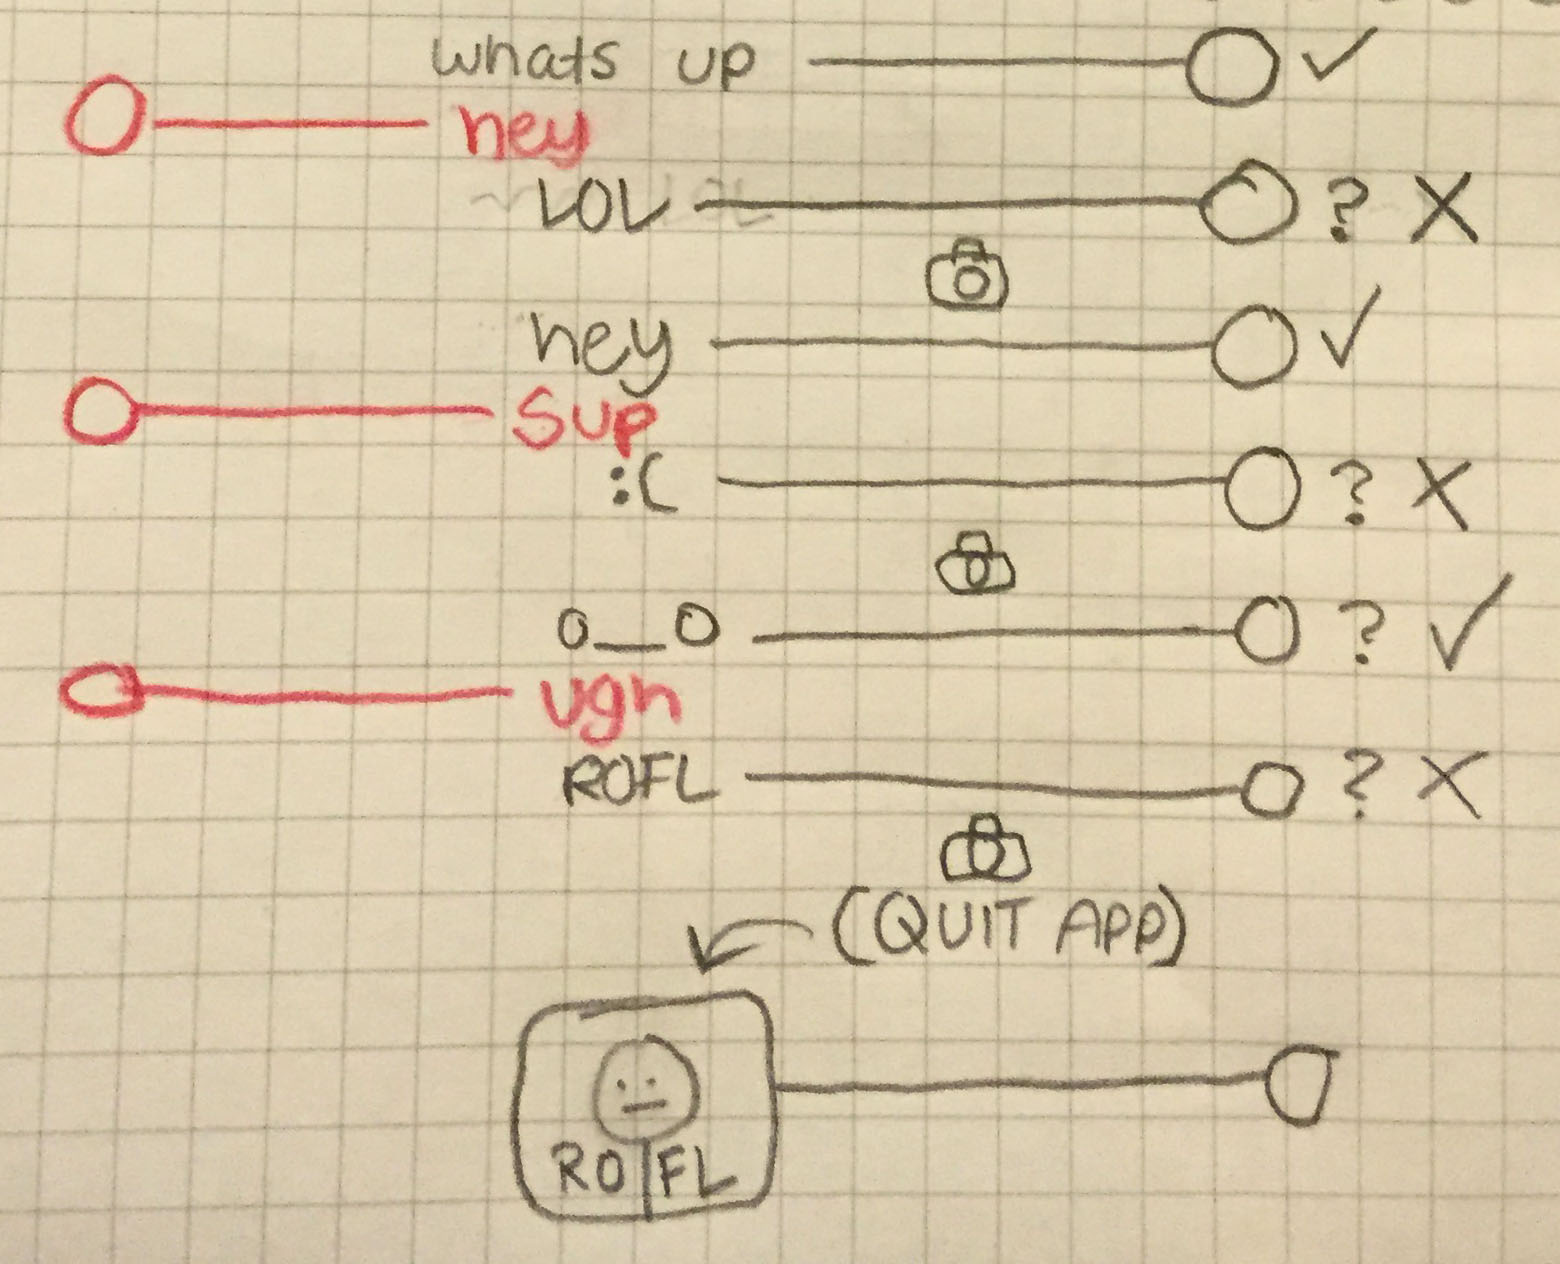 whats up ✓
hey
LOL ? X
hey ✓
Sup
:( ? X
o__O ? ✓
ugh
ROFL ? X
(QUIT APP)
RO FL